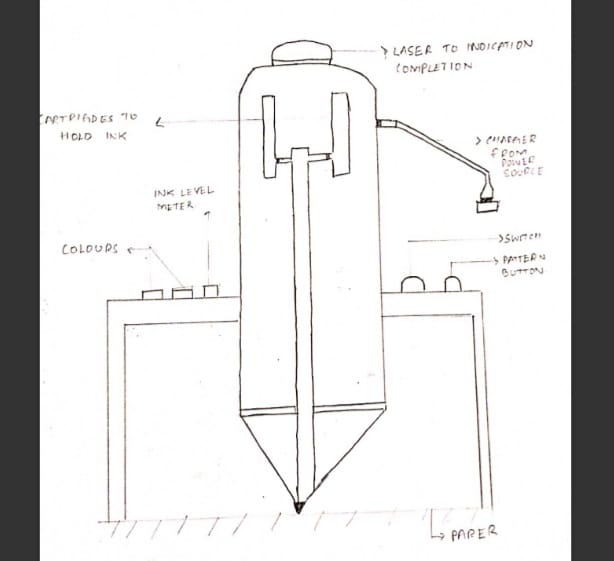 LASER TO INDICATION
COMPLETION
CARTRIDGES TO
HOLD INK
CHARGER
FROM
POWER
SOURCE
INK LEVEL
METER
COLOURS
SWITCH
PATTERN
BUTTON
PAPER